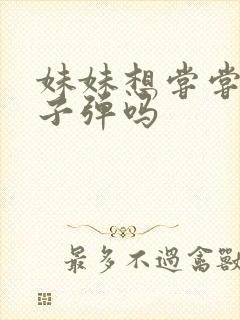 妹妹想尝尝
子弹吗
最多不過禽獸